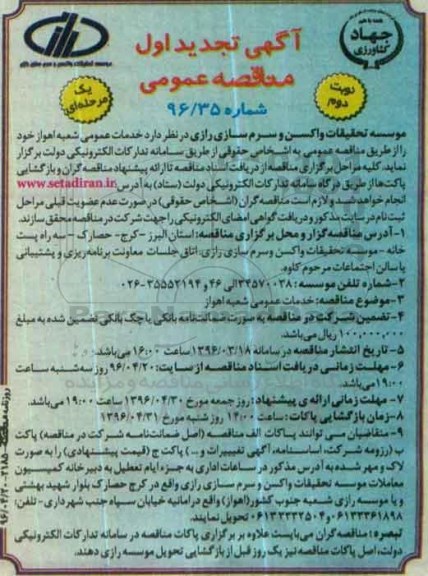 آگهی تجدید اول
مناقصه عمومی
شماره ۹۶/۳۵
جهاد
کشاورزی
نوبت
دوم
یک
مرحله‌ای
موسسه تحقیقات واکسن و سرم سازی رازی در نظر دارد خدمات عمومی شعبه اهواز خود
را از طریق مناقصه عمومی به اشخاص حقوقی از طریق سامانه تدارکات الکترونیکی دولت برگزار
نماید. کلیه مراحل برگزاری مناقصه از دریافت اسناد مناقصه تا ارائه پیشنهاد مناقصه گران و بازگشایی
پاکت‌ها از طریق درگاه سامانه تدارکات الکترونیکی دولت (ستاد) به آدرس www.setadiran.ir
انجام خواهد شد و لازم است مناقصه گران (اشخاص حقوقی) در صورت عدم عضویت قبلی مراحل
ثبت نام در سایت مذکور و دریافت گواهی امضای الکترونیکی را جهت شرکت در مناقصه محقق سازند.
۱- آدرس مناقصه گزار و محل برگزاری مناقصه: استان البرز - کرج - حصارک - سه راه پست
خانه - موسسه تحقیقات واکسن و سرم سازی رازی، اتاق جلسات معاونت برنامه ریزی و پشتیبانی
یا سالن اجتماعات مرحوم کاوه.
۲- شماره تلفن موسسه: ۳۴۵۷۰۰۳۸ الی ۴۶ و ۳۵۵۵۲۱۹۴-۰۲۶
۳- موضوع مناقصه: خدمات عمومی شعبه اهواز
۴- تضمین شرکت در مناقصه به صورت ضمانت‌نامه بانکی یا چک بانکی تضمین شده به مبلغ
۱۰۰,۰۰۰,۰۰۰ ریال می‌باشد.
۵- تاریخ انتشار مناقصه در سامانه ۱۳۹۶/۰۳/۱۸ ساعت ۱۶:۰۰ می‌باشد.
۶- مهلت زمانی دریافت اسناد مناقصه از سایت: ۹۶/۰۴/۲۰ روز سه‌شنبه ساعت
۱۹:۰۰ می‌باشد.
۷- مهلت زمانی ارائه ی پیشنهاد: روز جمعه مورخ ۱۳۹۶/۰۴/۳۰ ساعت ۱۹:۰۰ می‌باشد.
۸- زمان بازگشایی پاکات: ساعت ۱۴:۰۰ روز شنبه مورخ ۱۳۹۶/۰۴/۳۱
۹- متقاضیان می توانند پاکات الف مناقصه (اصل ضمانت‌نامه شرکت در مناقصه) پاکت
ب (رزومه شرکت، اساسنامه، آگهی تغییرات و ...) پاکت ج (قیمت پیشنهادی) را به صورت
لاک و مهر شده به آدرس مذکور در ساعات اداری به جزء ایام تعطیل به دبیرخانه کمیسیون
معاملات موسسه تحقیقات واکسن و سرم سازی رازی واقع در کرج حصارک بلوار شهید بهشتی
و یا موسسه رازی شعبه جنوب کشور (اهواز) واقع در امانیه خیابان سپاه جنب شهرداری - تلفن:
۰۶۱۳۳۳۶۱۸۹۸ و ۰۶۱۳۳۳۳۲۵۰۴ تحویل نمایند.
تبصره: مناقصه گران می‌بایست علاوه بر بارگزاری پاکات مناقصه در سامانه تدارکات الکترونیکی
دولت، اصل پاکات مناقصه نیز یک روز قبل از بازگشایی تحویل موسسه رازی دهند.